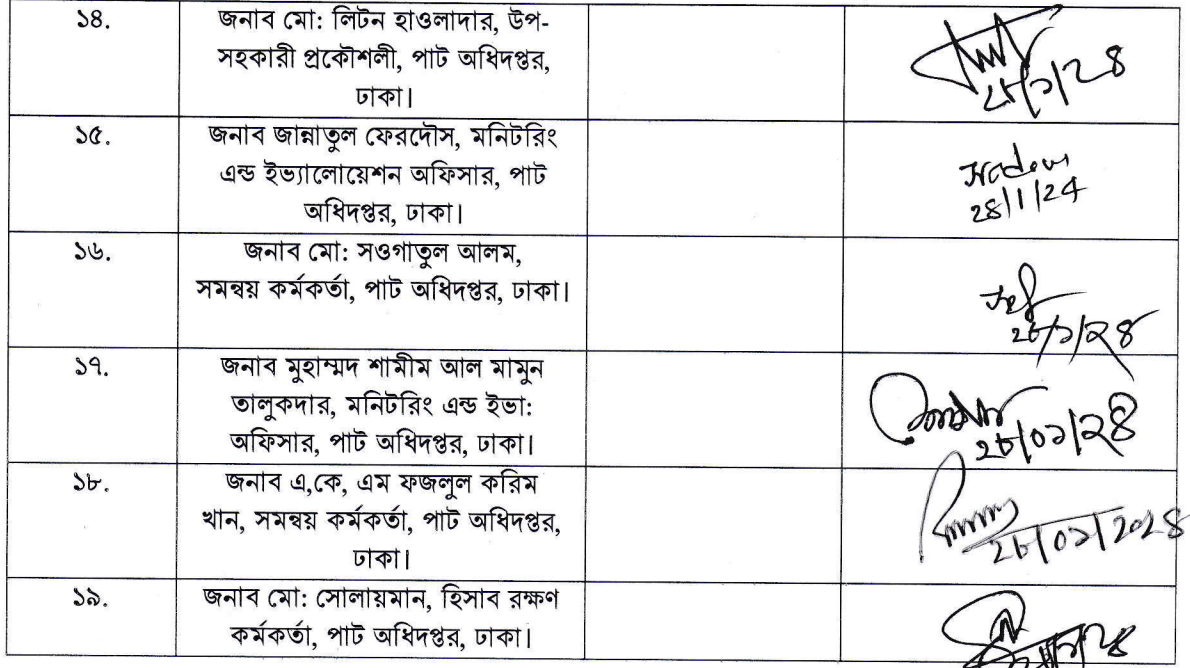 ১৪.
জনাব মো: লিটন হাওলাদার, উপ-
সহকারী প্রকৌশলী, পাট অধিদপ্তর,
ঢাকা।
২৮/১/২৪
১৫.
জনাব জান্নাতুল ফেরদৌস, মনিটরিং
এন্ড ইভ্যালোয়েশন অফিসার, পাট
অধিদপ্তর, ঢাকা।
28/1/24
১৬.
জনাব মো: সওগাতুল আলম,
সমন্বয় কর্মকর্তা, পাট অধিদপ্তর, ঢাকা।
২৮/১/২৪
১৭.
জনাব মুহাম্মদ শামীম আল মামুন
তালুকদার, মনিটরিং এন্ড ইভা:
অফিসার, পাট অধিদপ্তর, ঢাকা।
২৮/০১/২৪
১৮.
জনাব এ,কে, এম ফজলুল করিম
খান, সমন্বয় কর্মকর্তা, পাট অধিদপ্তর,
ঢাকা।
২৮/০১/২০২৪
১৯.
জনাব মো: সোলায়মান, হিসাব রক্ষণ
কর্মকর্তা, পাট অধিদপ্তর, ঢাকা।